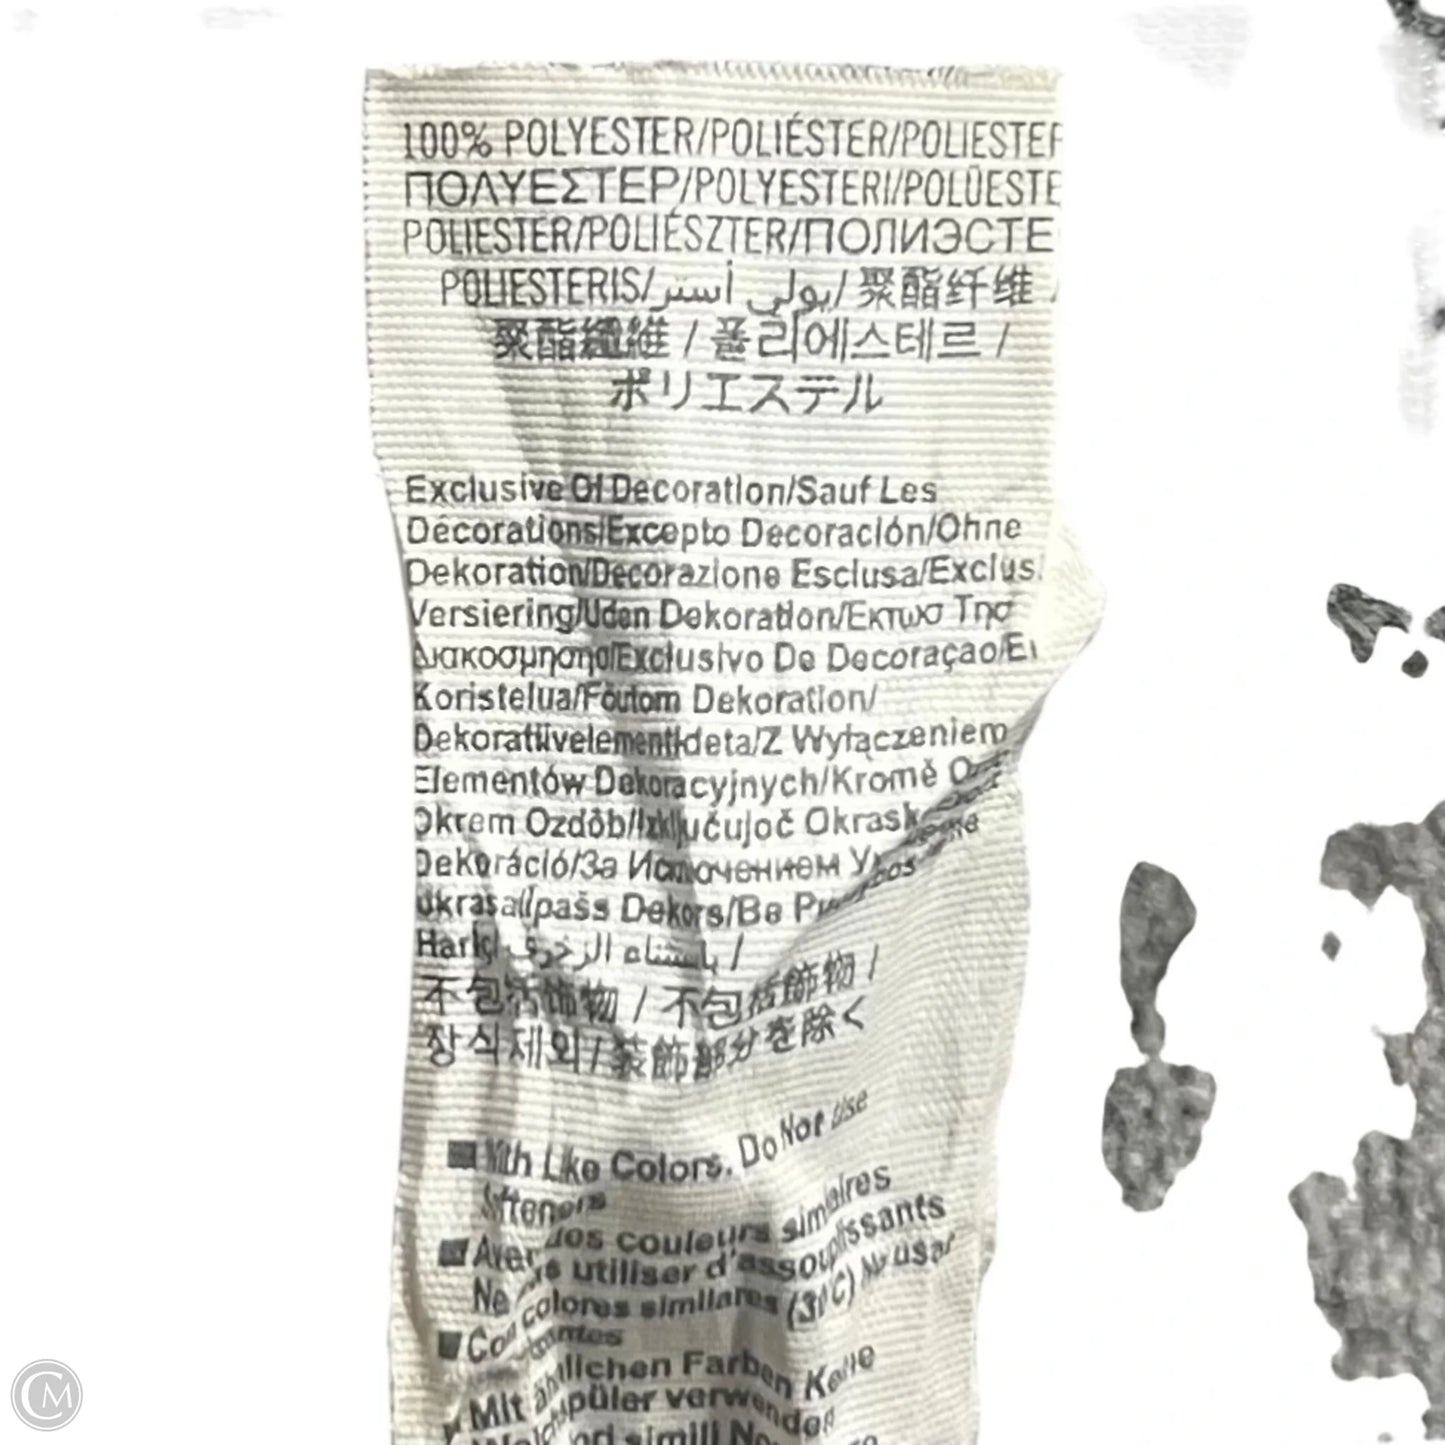 100% POLYESTER/POLIÉSTER/POLIESTER
ΠΟΛΥΕΣΤΕΡ/POLYESTERI/POLÜESTE
POLIESTER/POLIÉSZTER/ПОЛИЭСТЕ
POLIESTERIS/بولي أستر/聚酯纤维 /
聚酯纖維 / 폴리에스테르 /
ポリエステル
Exclusive Of Decoration/Sauf Les
Décorations/Excepto Decoración/Ohne
Dekoration/Decorazione Esclusa/Exclus.
Versiering/Udan Dekoration/Εκτωσ Τησ
Διακοσμησησ/Exclusivo De Decoraçao/Ei
Koristelua/Förutom Dekoration/
Dekoratiivelementideta/Z Wyłączeniem
Elementów Dekoracyjnych/Kromě
Okrem Ozdôb/Izključujoč
Dekoráció/За Исключением
ukrasa/Īpašs Dekors/Be
Hariç/ باستثناء الزخرفي /
不包括飾物 / 不包括飾物 /
장식제외/装飾部分を除く
With Like Colors. Do Not Use
Softeners
Avec des couleurs similaires
Ne pas utiliser d'assouplissants
Con colores similares (30°C) No usar
Mit ähnlichen Farben Keine
Weichspüler verwenden
simili
CM